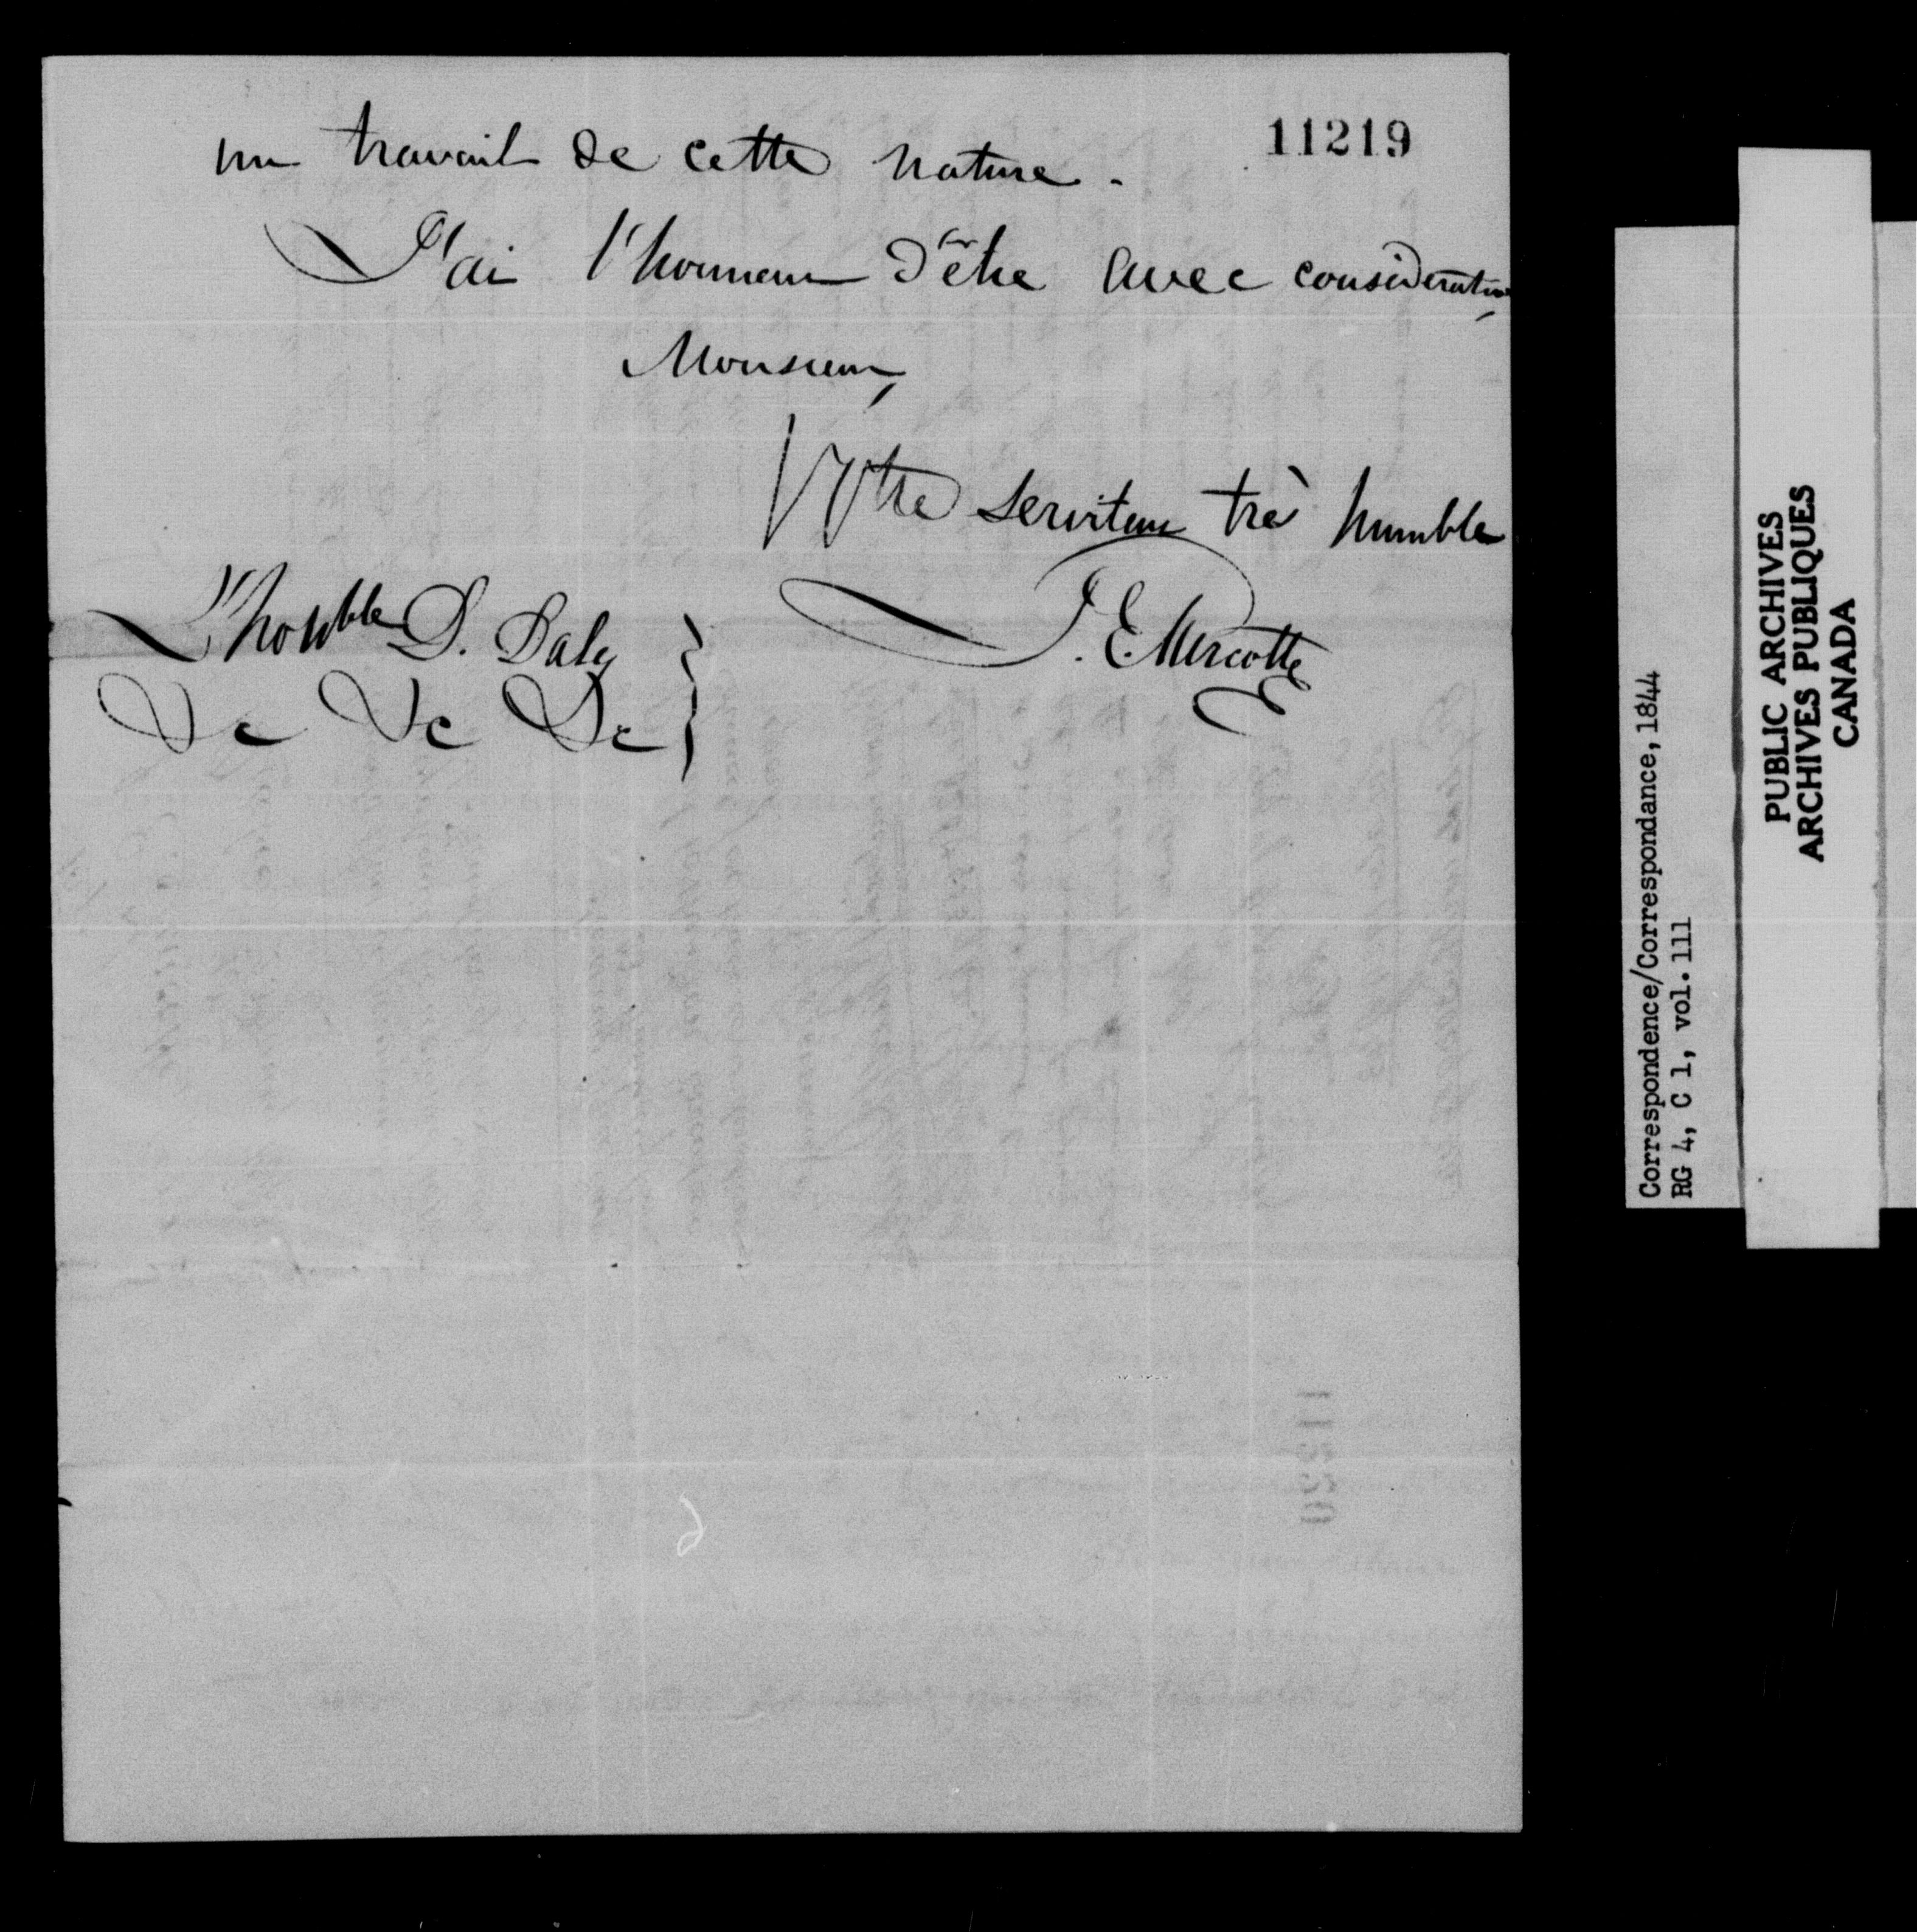 11219
un travail de cette nature.
J'ai l'honneur d'être avec considération,
Monsieur,
Votre serviteur très humble
J. E. Turcotte
L'honble D. Daly
&c &c &c
Correspondence/Correspondance, 1844
RG 4, C 1, vol. 111
PUBLIC ARCHIVES
ARCHIVES PUBLIQUES
CANADA